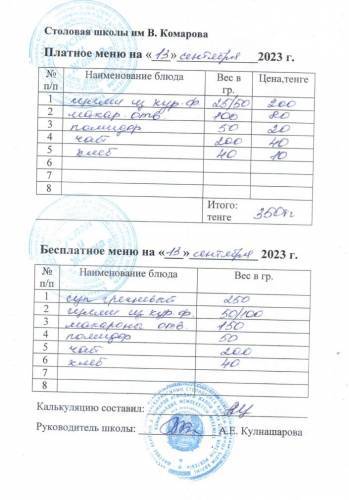 Столовая школы им В. Комарова
Платное меню на «13» сентября 2023 г.
№ п/п Наименование блюда Вес в гр. Цена,тенге
1 гуляш из кур.ф 25/50 200
2 макар отв 100 80
3 помидор 50 20
4 чай 200 40
5 хлеб 40 10
6
7
8
Итого: тенге 350тг
Бесплатное меню на «13» сентября 2023 г.
№ п/п Наименование блюда Вес в гр.
1 суп гречневый 250
2 гуляш из кур ф 50/100
3 макароны отв 150
4 помидор 50
5 чай 200
6 хлеб 40
7
8
Калькуляцию составил:
Руководитель школы: А.Е. Кулнашарова